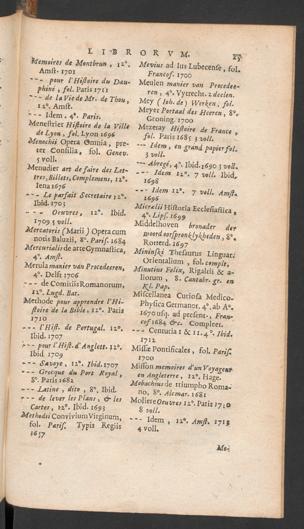 LIBRORVM. 25
Memoires de Montbrun, 12°.
Amst. 1701
--- pour l'Histoire du Dau-
phiné, fol. Paris 1711
--- de la Vie de Mr. de Thou,
12°. Amst.
--- Idem, 4°. Paris.
Menestrier Histoire de la Ville
de Lyon, fol. Lyon 1696
Menochii Opera Omnia, præ-
ter Consilia, fol. Genev.
5 voll.
Menudier art de faire des Let-
tres, Billets, Complemens, 12°.
Iena 1676
--- Le parfait Secretaire 12°.
Ibid. 1705
--- Oeuvres, 12°. Ibid.
1709 5 voll.
Mercatoris (Marii) Opera cum
notis Baluzii, 8°. Paris. 1684
Mercurialis de arte Gymnastica,
4°. Amst.
Merula manier van Procedeeren,
4°. Delft 1706
--- de Comitiis Romanorum,
12°. Lugd. Bat.
Methode pour apprendre l'Hi-
stoire de la Bible, 12°. Paris
1710
--- l'Hist. de Portugal. 12°.
Ibid. 1707
--- pour l'Hist. d'Anglett. 12°.
Ibid 1709
--- Savoye, 12°. Ibid. 1707
--- Grecque du Port Royal,
8°. Paris 1682
--- Latine, dito, 8°. Ibid.
--- de lever les Plans, & les
Cartes, 12°. Ibid. 1693
Methodii Convivium Virginum,
fol. Paris. Typis Regiis
1657
Mevius ad Ius Lubecense, fol.
Francof. 1700
Meulen manier van Procedee-
ren, 4°. Vytrecht. 2 deelen.
Mey (Joh. de) Werken, fol.
Meyer Portaal des Heeren, 8°.
Groning. 1700
Mezeray Histoire de France,
fol. Paris 1685 3 voll.
--- Idem, en grand papier fol.
3 voll.
--- Abregé, 4°. Ibid. 1690 3 voll.
--- Idem 12°. 7 voll. Ibid.
1698
--- Idem 12°. 7 voll. Amst.
1696
Micrælii Historia Ecclesiastica,
4°. Lips. 1699
Middelhoven
woord oorspronklykheden, 8°.
Rotterd. 1697
Mininski Thesaurus Linguar.
Orientalium, fol. complet.
Minutius Felix, Rigaltii & a-
liorum, 8. Cantabr. gr. en
Kl. Pap.
Miscellanea Curiosa Medico-
Physica Germanor. 4°. ab A°.
1670 usq. ad present., Fran-
cof 1684 &c. Compleet.
--- Centuria 1 & 11. 4°. Ibid.
1712
Missæ Pontificales, fol. Paris.
1700
Misson memoires d'un Voyageur
en Angleterre, 12°. Hage.
Mobachius de triumpho Roma-
no, 8°. Alcmar. 1681
Moliere Oeuvres 12°. Paris 1710
8 voll.
--- Idem, 12°. Amst. 1713
4 voll.
Mo-